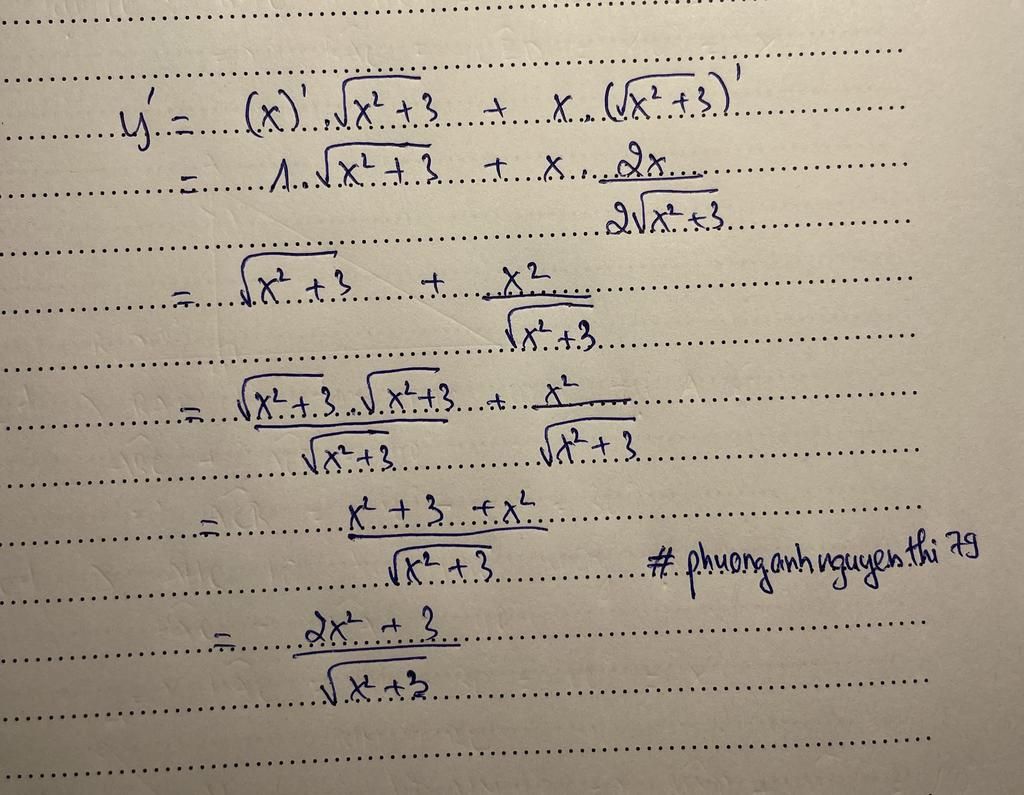 y' = (x)' . √(x² + 3) + x . (√(x² + 3))'
= 1 . √(x² + 3) + x . 2x / 2√(x² + 3)
= √(x² + 3) + x² / √(x² + 3)
= √(x² + 3) . √(x² + 3) / √(x² + 3) + x² / √(x² + 3)
= x² + 3 + x² / √(x² + 3)
# phuonganhnguyenthi79
= 2x² + 3 / √(x² + 3)